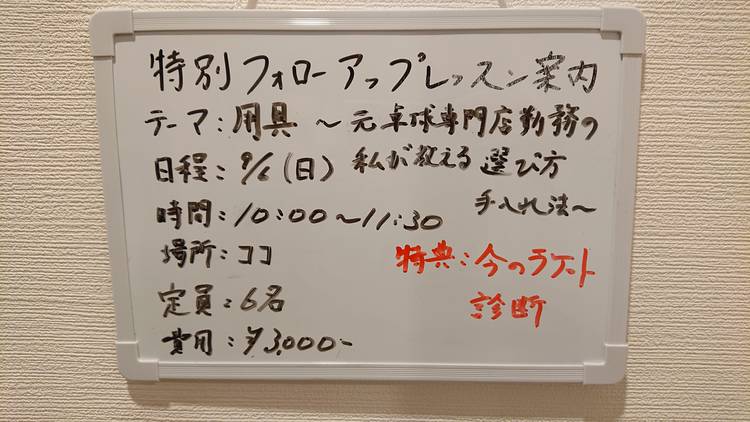 特別フォローアップレッスン案内
テーマ：用具 〜元卓球専門店勤務の
私が教える選び方
手入れ法〜
日程：9/6(日)
時間：10:00〜11:30
場所：ココ
定員：6名
費用：¥3,000-
特典：今のラケット
診断